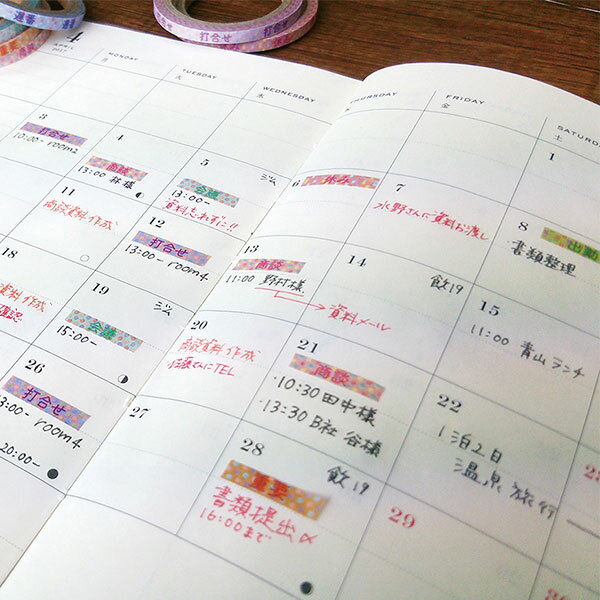 通番
打合せ
打合せ
4
APRIL
2017
MONDAY
月
TUESDAY
火
WEDNESDAY
水
THURSDAY
FRIDAY
金
SATURDAY
土
1
3
打合せ
10:00- room2
4
商談
13:00 林様
5
ジム
会議
13:00-
資料忘れずに!!
6
休み
7
水野さんに資料お渡し
8
出勤
書類整理
11
商談資料作成
12
打合せ
13:00- room4
13
商談
11:00 野村様
→資料メール
14
飲19
15
11:00 青山ランチ
18
資料作成
確認
19
ジム
会議
15:00-
20
商談資料作成
TEL
21
商談
10:30 田中様
13:30 B社 谷様
22
1泊2日
温泉旅行
26
打合せ
13:00- room4
20:00-
27
28
飲19
重要
書類提出〆
16:00まで
29
30